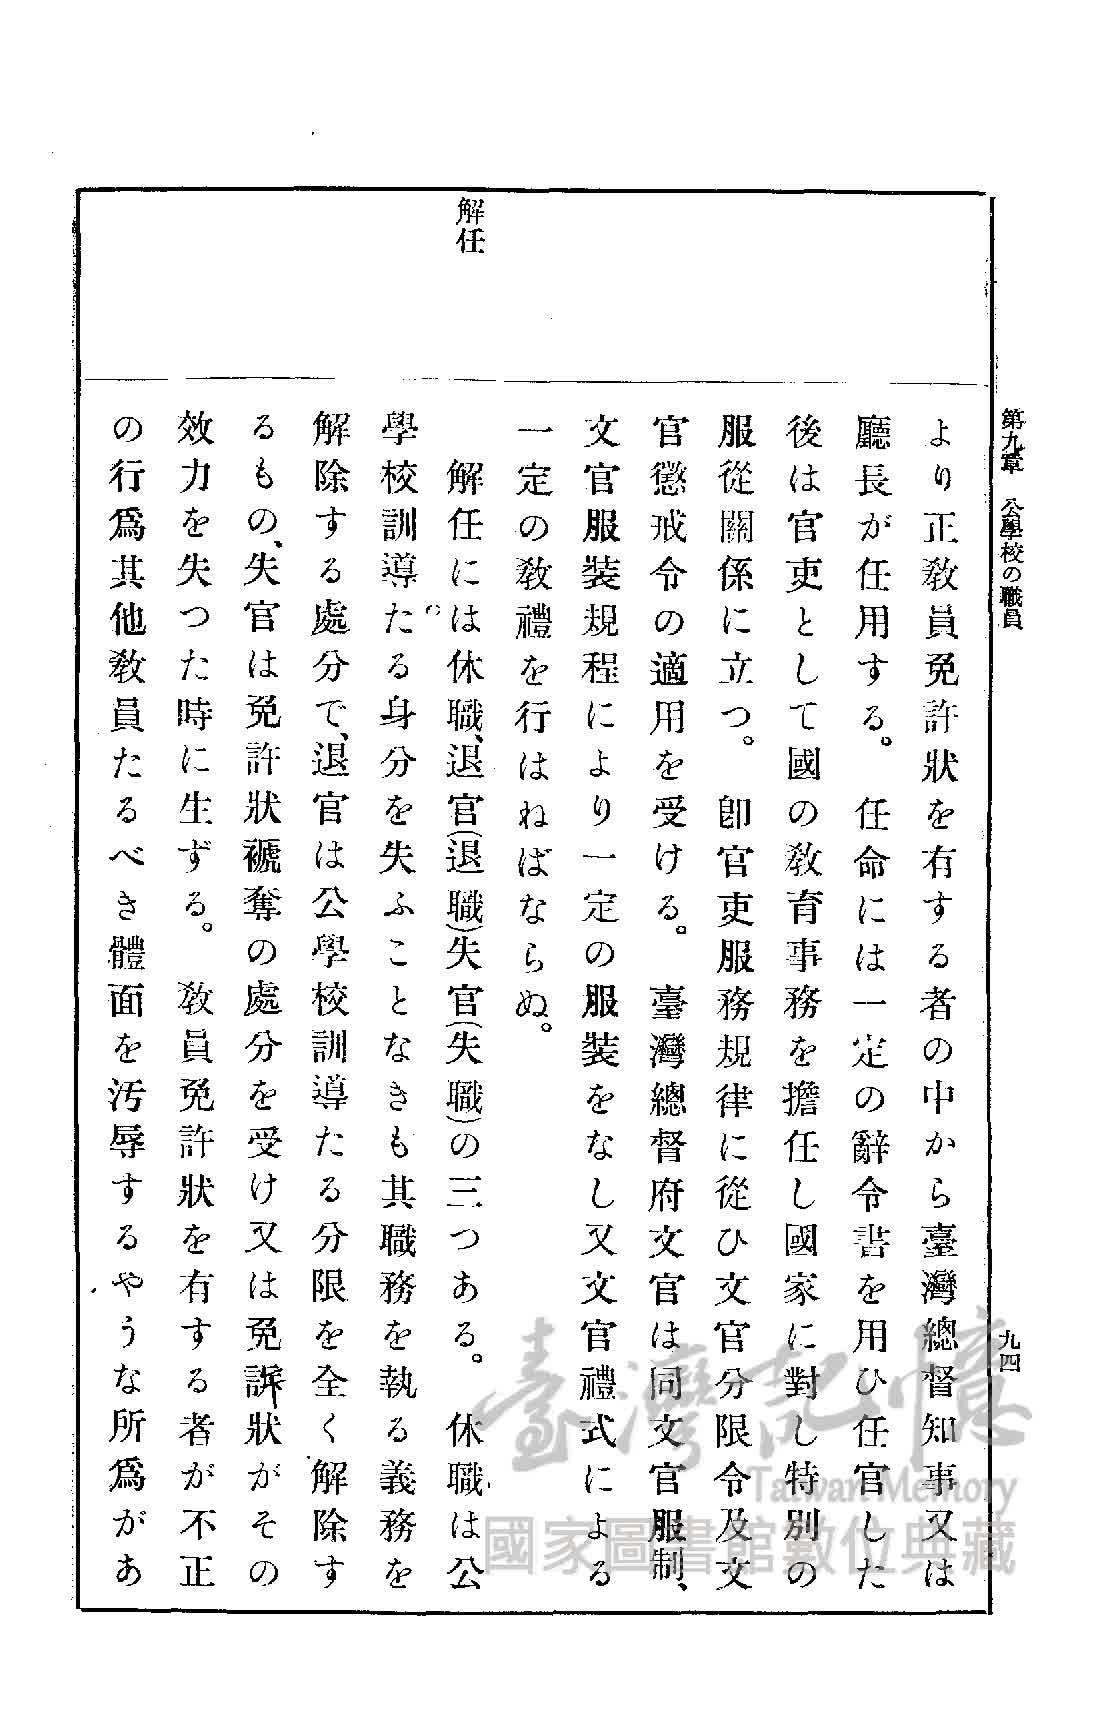 第九章 公學校の職員
九四
解任
より正敎員免許狀を有する者の中から臺灣總督知事又は
廳長が任用する。 任命には一定の辭令書を用ひ任官した
後は官吏として國の敎育事務を擔任し國家に對し特別の
服從關係に立つ。 卽官吏服務規律に從ひ文官分限令及文
官懲戒令の適用を受ける。 臺灣總督府文官は同文官服制、
文官服裝規程により一定の服裝をなし又文官禮式による
一定の敎禮を行はねばならぬ。
解任には休職、退官(退職)失官(失職)の三つある。 休職は公
學校訓導たる身分を失ふことなきも其職務を執る義務を
解除する處分で、退官は公學校訓導たる分限を全く解除す
るもの、失官は免許狀褫奪の處分を受け又は免訴狀がその
效力を失つた時に生ずる。 敎員免許狀を有する者が不正
の行爲其他敎員たるべき體面を汚辱するやうな所爲があ
臺灣記憶
Taiwan Memory
國家圖書館數位典藏